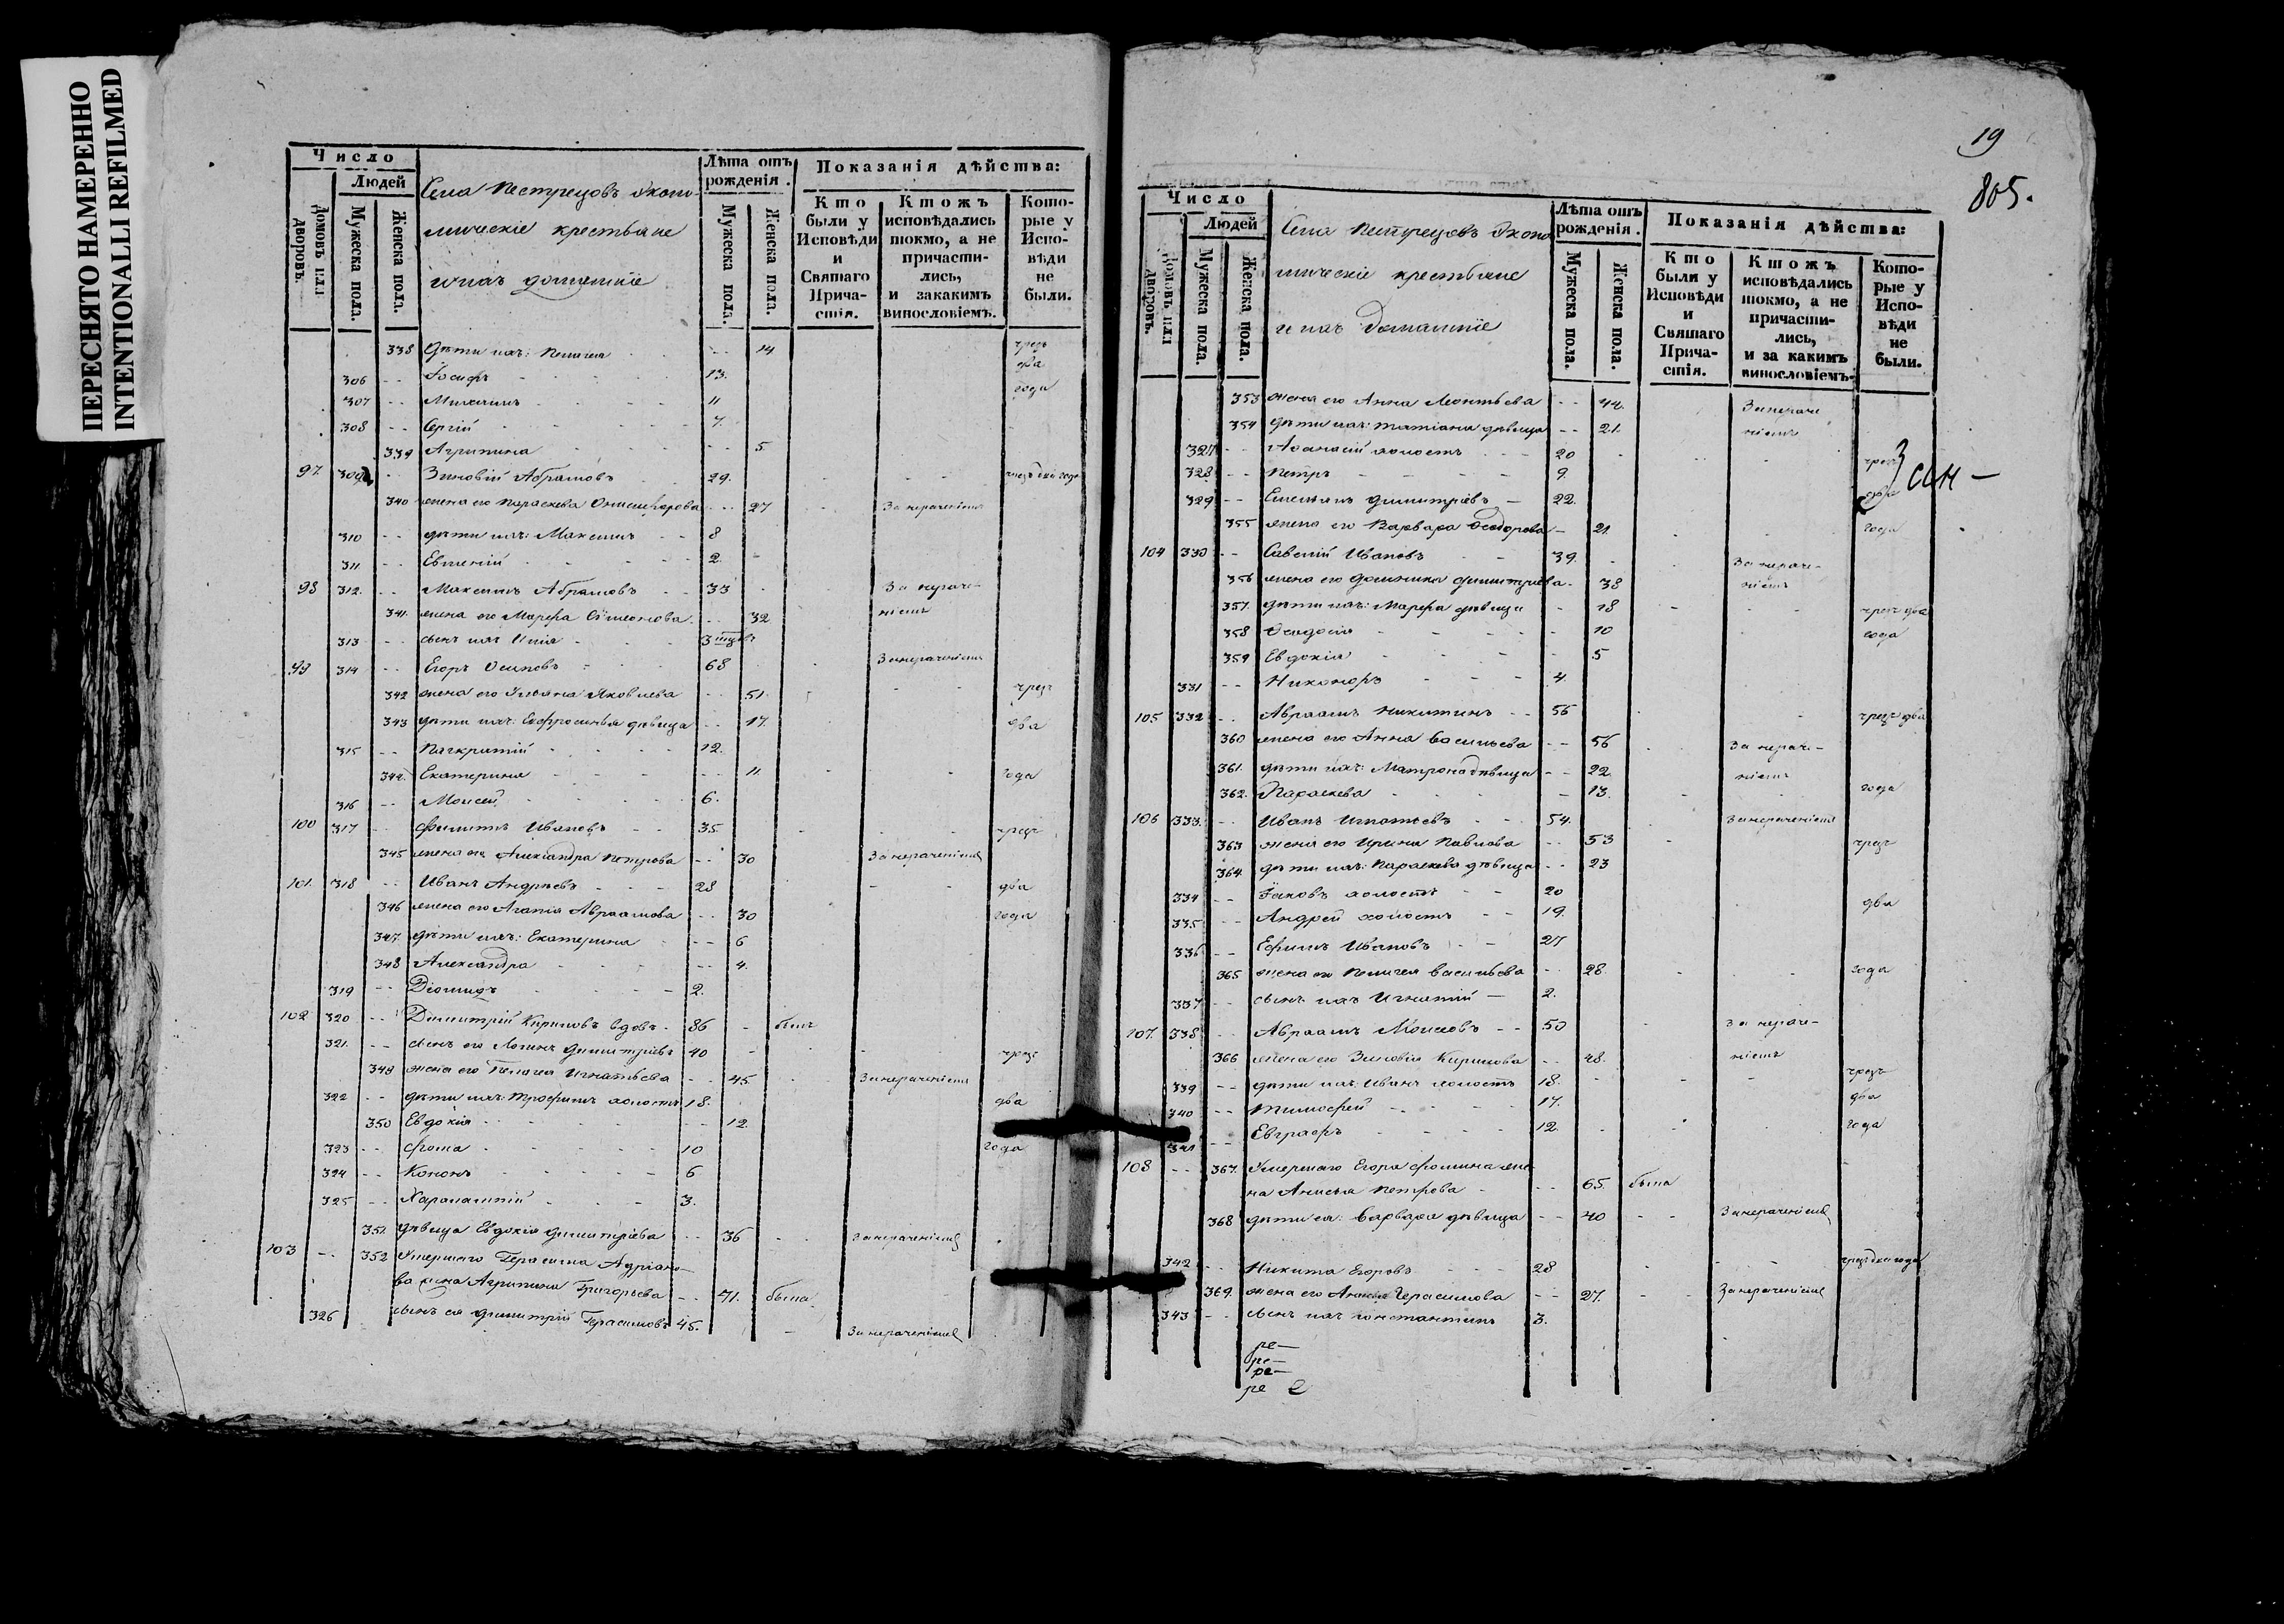 ПЕРЕСНЯТО НАМЕРЕННО
INTENTIONALLI REFILMED
Число
Людей
Домовъ или дворовъ.
Мужеска пола.
Женска пола.
Села Пестрецовъ Эконо-
мическіе крестьяне
и ихъ домашніе
Лѣта отъ рожденія.
Мужеска пола.
Женска пола.
Показанія дѣйства:
Кто были у Исповѣди и Святаго Прича-стія.
Ктожъ исповѣдались токмо, а не причасти-лись, и закакимъ винословіемъ.
Кото-рые у Испо-вѣди не были.
338 Дѣти ихъ: Пелагея - - 14 чрезъ
два
306 - - Іосифъ 13.
года
307 - - Михаилъ 11
308 - - Сергій 7.
339 Агрипина - - 5
97. 309 - Зиновій Абрамовъ 29. чрезъ два года
340 жена его Параскева Онисифорова - - 27 За нераченіемъ
310 - - дѣти ихъ: Максимъ 8
311. - - Евгеній 2.
98 312. - - Максимъ Абрамовъ 33 За нераче-
341. жена его Марфа Симеонова - - 32 ніемъ
313 - - сынъ ихъ Илія 3
99 314 - - Егоръ Осиповъ 68 За нераченіемъ
342 жена его Ульяна Яковлева - - 51. чрезъ
343 дѣти ихъ: Евфросинья дѣвица - - 17. два
315 - - Панкратій 12.
344. Екатерина - - 11. года
316 - - Моисей 6.
100 317 - - Филиппъ Ивановъ 35. чрезъ
345 жена его Александра Петрова - - 30 За нераченіемъ
101. 318 - - Иванъ Андреевъ 28 два
346 жена его Агапія Авраамова - - 30 года
347. дѣти ихъ: Екатерина - - 6
348 Александра - - 4.
319 - - Діомидъ 2.
102 320 - - Димитрій Кириловъ вдовъ 86 - былъ
321. - - сынъ его Логинъ Димитріевъ 40 чрезъ
349 жена его Пелагея Игнатьева - - 45. За нераченіемъ
322 - - дѣти ихъ: Трофимъ холостъ 18. два
350 Евдокія - - 12.
323 - - Фома 10 года
324 - - Кононъ 6
325 - - Харлампій 3.
351. дѣвица Евдокія Димитріева - - 36 За нераченіемъ
103 - - 352 Умершаго Герасима Адріано-
ва жена Агрипина Григорьева - - 71. была
326 сынъ ея Димитрій Герасимовъ 45. За нераченіемъ
19
805.
Число
Людей
Домовъ или дворовъ.
Мужеска пола.
Женска пола.
Села Пестрецовъ Эконо
мическіе крестьяне
и ихъ домашніе
Лѣта отъ рожденія.
Мужеска пола.
Женска пола.
Показанія дѣйства:
Кто были у Исповѣди и Святаго Прича-стія.
Ктожъ исповѣдались токмо, а не причасти-лись, и за какимъ винословіемъ.
Кото-рые у Испо-вѣди не были.
353 жена его Анна Леонтьева - - 44. За нераче
354 дѣти ихъ: Татіана дѣвица - - 21. ніемъ
327 - - Афанасій холостъ 20 чрезъ
328 - - Петръ 9.
329 - - Емельянъ Димитріевъ 22. два
355 жена его Варвара Феодорова - 21. года
104 330 - - Савелій Ивановъ 39. За нераче-
356 жена его Домника Димитріева - 38 ніемъ
357. дѣти ихъ: Марфа дѣвица - 18 чрезъ два
358 Феодосія - 10 года
359 Евдокія - 5
331 - - Никаноръ 4.
105 332 - - Авраамъ Никитинъ - - 56 чрезъ два
360 жена его Анна Васильева - - 56 За нераче-
361. дѣти ихъ: Матрона дѣвица - - 22. ніемъ
362. Параскева - 13. года
106 333. - - Иванъ Игнатьевъ 54. За нераченіемъ
363 жена его Ирина Павлова - - 53 чрезъ
364. дѣти ихъ: Параскева дѣвица - - 23
334 - - Іаковъ холостъ 20 два
335 - - Андрей холостъ 19.
336 - - Ефимъ Ивановъ 27
365 жена его Пелагея Васильева - - 28. года
337 - - сынъ ихъ Игнатій 2.
107. 338 - - Авраамъ Моисеовъ - - 50 За нераче-
366 жена его Зиновія Кирилова - - 48. ніемъ
339 - - дѣти ихъ: Иванъ холостъ 18. чрезъ
340 - - Тимофей 17. два
341 - - Евграфъ 12. года
108 - - 367. Умершаго Егора Фомина же-
на Анисья Петрова - - 65. была
368 дѣти ея: Варвара дѣвица - - 40 За нераченіемъ
342 - - Никита Егоровъ 28 чрезъ два года
369. жена его Герасимова - - 27. За нераченіемъ
343 - - сынъ ихъ Константинъ 3.
ре-
ре-
ре-
ре 2